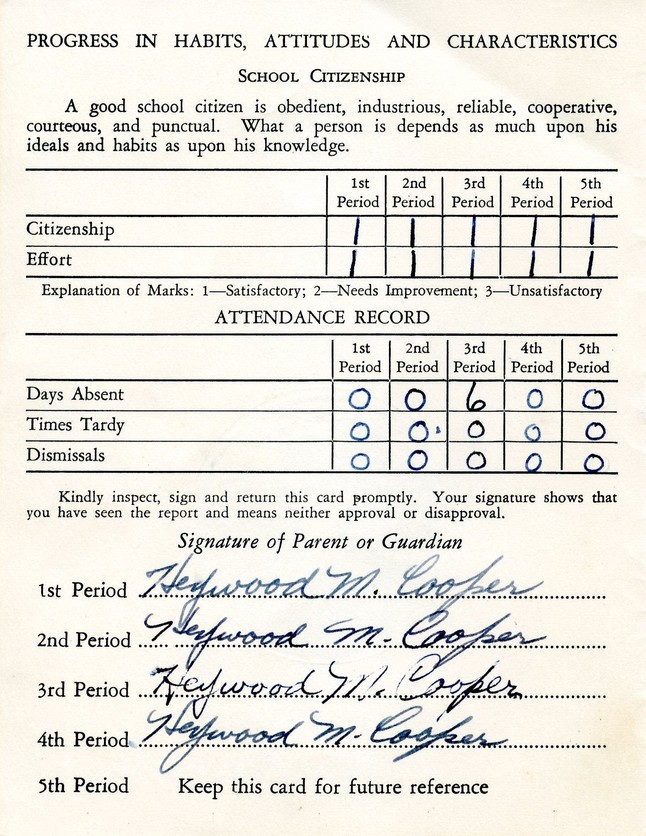 PROGRESS IN HABITS, ATTITUDES AND CHARACTERISTICS
SCHOOL CITIZENSHIP
A good school citizen is obedient, industrious, reliable, cooperative,
courteous, and punctual. What a person is depends as much upon his
ideals and habits as upon his knowledge.
1st Period 2nd Period 3rd Period 4th Period 5th Period
Citizenship 1 1 1 1 1
Effort 1 1 1 1 1
Explanation of Marks: 1—Satisfactory; 2—Needs Improvement; 3—Unsatisfactory
ATTENDANCE RECORD
1st Period 2nd Period 3rd Period 4th Period 5th Period
Days Absent 0 0 6 0 0
Times Tardy 0 0 0 0 0
Dismissals 0 0 0 0 0
Kindly inspect, sign and return this card promptly. Your signature shows that
you have seen the report and means neither approval or disapproval.
Signature of Parent or Guardian
1st Period Heywood M. Cooper
2nd Period Heywood M. Cooper
3rd Period Heywood M. Cooper
4th Period Heywood M. Cooper
5th Period Keep this card for future reference